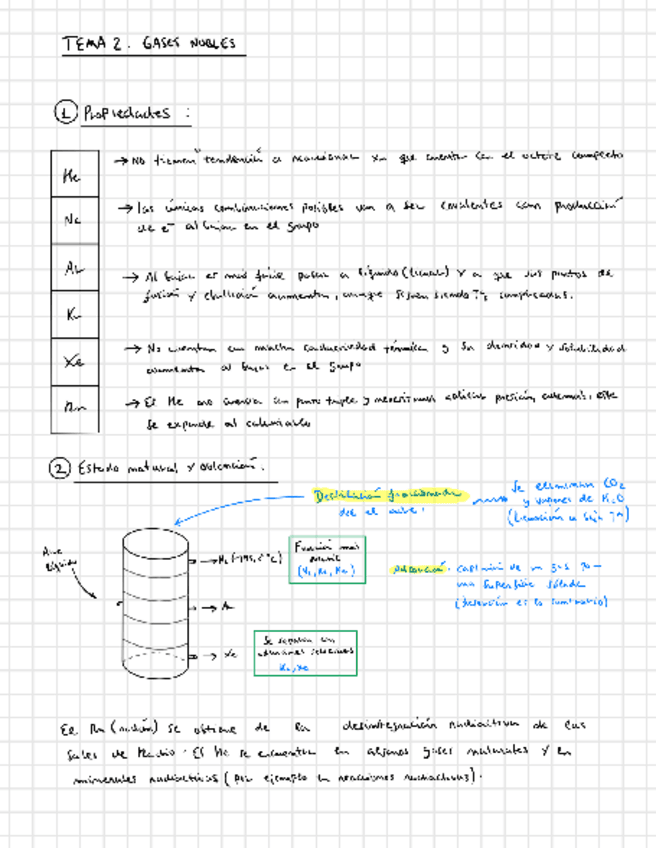 TEMA 2. GASES NOBLES
① Propiedades :
He
Ne
Ar
Kr
Xe
Rn
→ No tienen tendencia a reaccionar ya que cuentan con el octete completo
→ las únicas combinaciones posibles van a ser covalentes con producción
de e⁻ al bajar en el grupo
→ Al bajar es más fácil pasar a líquido (licuar) y a que sus puntos de
fusión y ebullición aumentan, aunque siguen siendo Tªs complicadas.
→ No cuentan con mucha conductividad térmica y su densidad y solubilidad
aumentan al bajar en el grupo
→ El He no cuenta con punto triple y necesitamos aplicar presión, además, este
se expande al calentarlo
② Estado natural y obtención.
Destilación fraccionada
de el aire.
Se eliminan CO₂
y vapores de H₂O
(licuación a baja Tª)
Aire
líquido
→ N₂ (-195,8°C)
Fracción más
(N₂, Ne, He)
→ Ar
→ Xe
Se separan con
Kr, Xe
Adsorción: captación de un gas
una superficie sólida
(desorción es lo contrario)
El Rn (radón) se obtiene de la desintegración radiactiva de las
sales de Radio. El He se encuentra en algunos gases naturales y en
minerales radiactivos (por ejemplo en reacciones